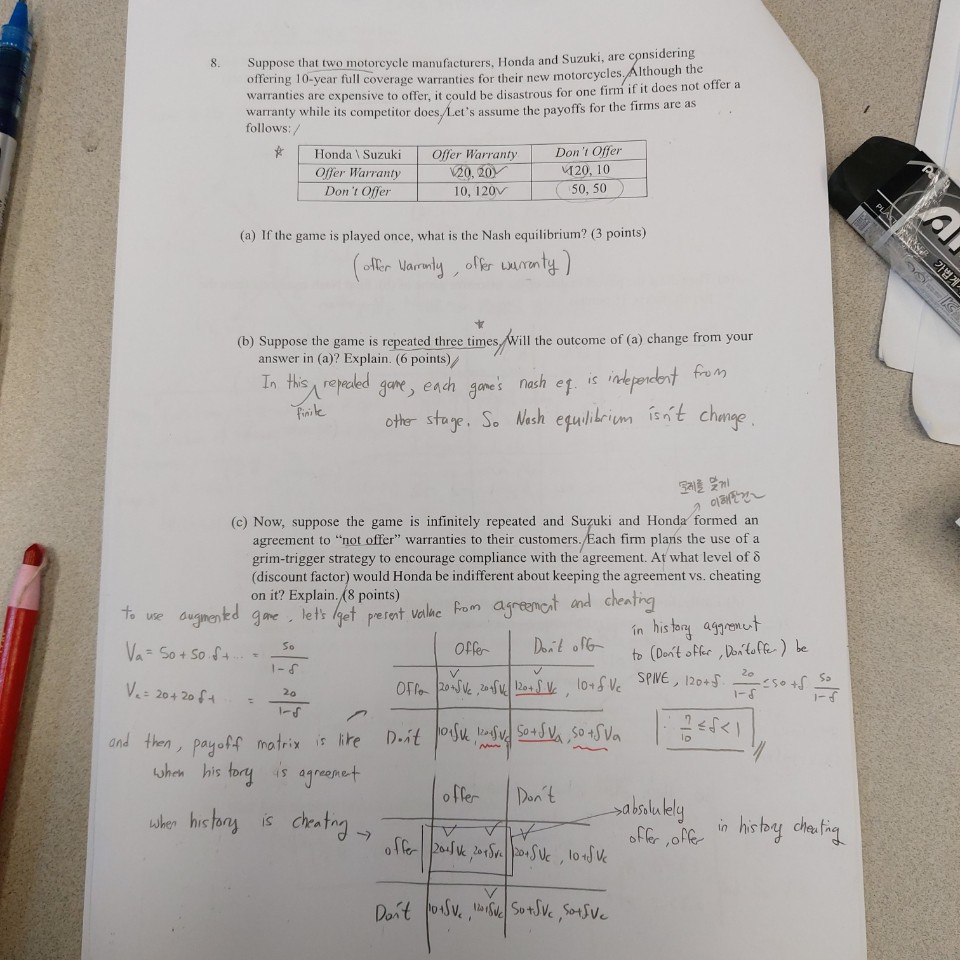 8. Suppose that two motorcycle manufacturers, Honda and Suzuki, are considering
offering 10-year full coverage warranties for their new motorcycles. Although the
warranties are expensive to offer, it could be disastrous for one firm if it does not offer a
warranty while its competitor does. Let's assume the payoffs for the firms are as
follows:
Honda \ Suzuki Offer Warranty Don't Offer
Offer Warranty 20, 20 120, 10
Don't Offer 10, 120 50, 50
(a) If the game is played once, what is the Nash equilibrium? (3 points)
(offer Warranty, offer warranty)
(b) Suppose the game is repeated three times. Will the outcome of (a) change from your
answer in (a)? Explain. (6 points)
In this finite repealed game, each game's nash eq. is independent from
other stage. So Nash equilibrium isn't change.
문제를 맞게
(c) Now, suppose the game is infinitely repeated and Suzuki and Honda formed an
agreement to "not offer" warranties to their customers. Each firm plans the use of a
grim-trigger strategy to encourage compliance with the agreement. At what level of δ
(discount factor) would Honda be indifferent about keeping the agreement vs. cheating
on it? Explain. (8 points)
To use augmented game, let's get present value from agreement and cheating
Va = 50 + 50·δ + ... = 50/1-δ
Vc = 20 + 20δ + ... = 20/1-δ
and then, payoff matrix is like
when history is agreement
Offer Don't offer
Offer 20+δVc, 20+δVc 120+δVc, 10+δVc
Don't 10+δVc, 120+δVc 50+δVa, 50+δVa
in history aggrement
to (Don't offer, Don't offer) be
SPNE, 120+δ· 20/1-δ ≤ 50+δ 50/1-δ
∴ 7/10 ≤ δ < 1
when history is cheating →
offer Don't
offer 20+δVc, 20+δVc 120+δVc, 10+δVc
Don't 10+δVc, 120+δVc 50+δVc, 50+δVc
absolutely
offer, offer in history cheating